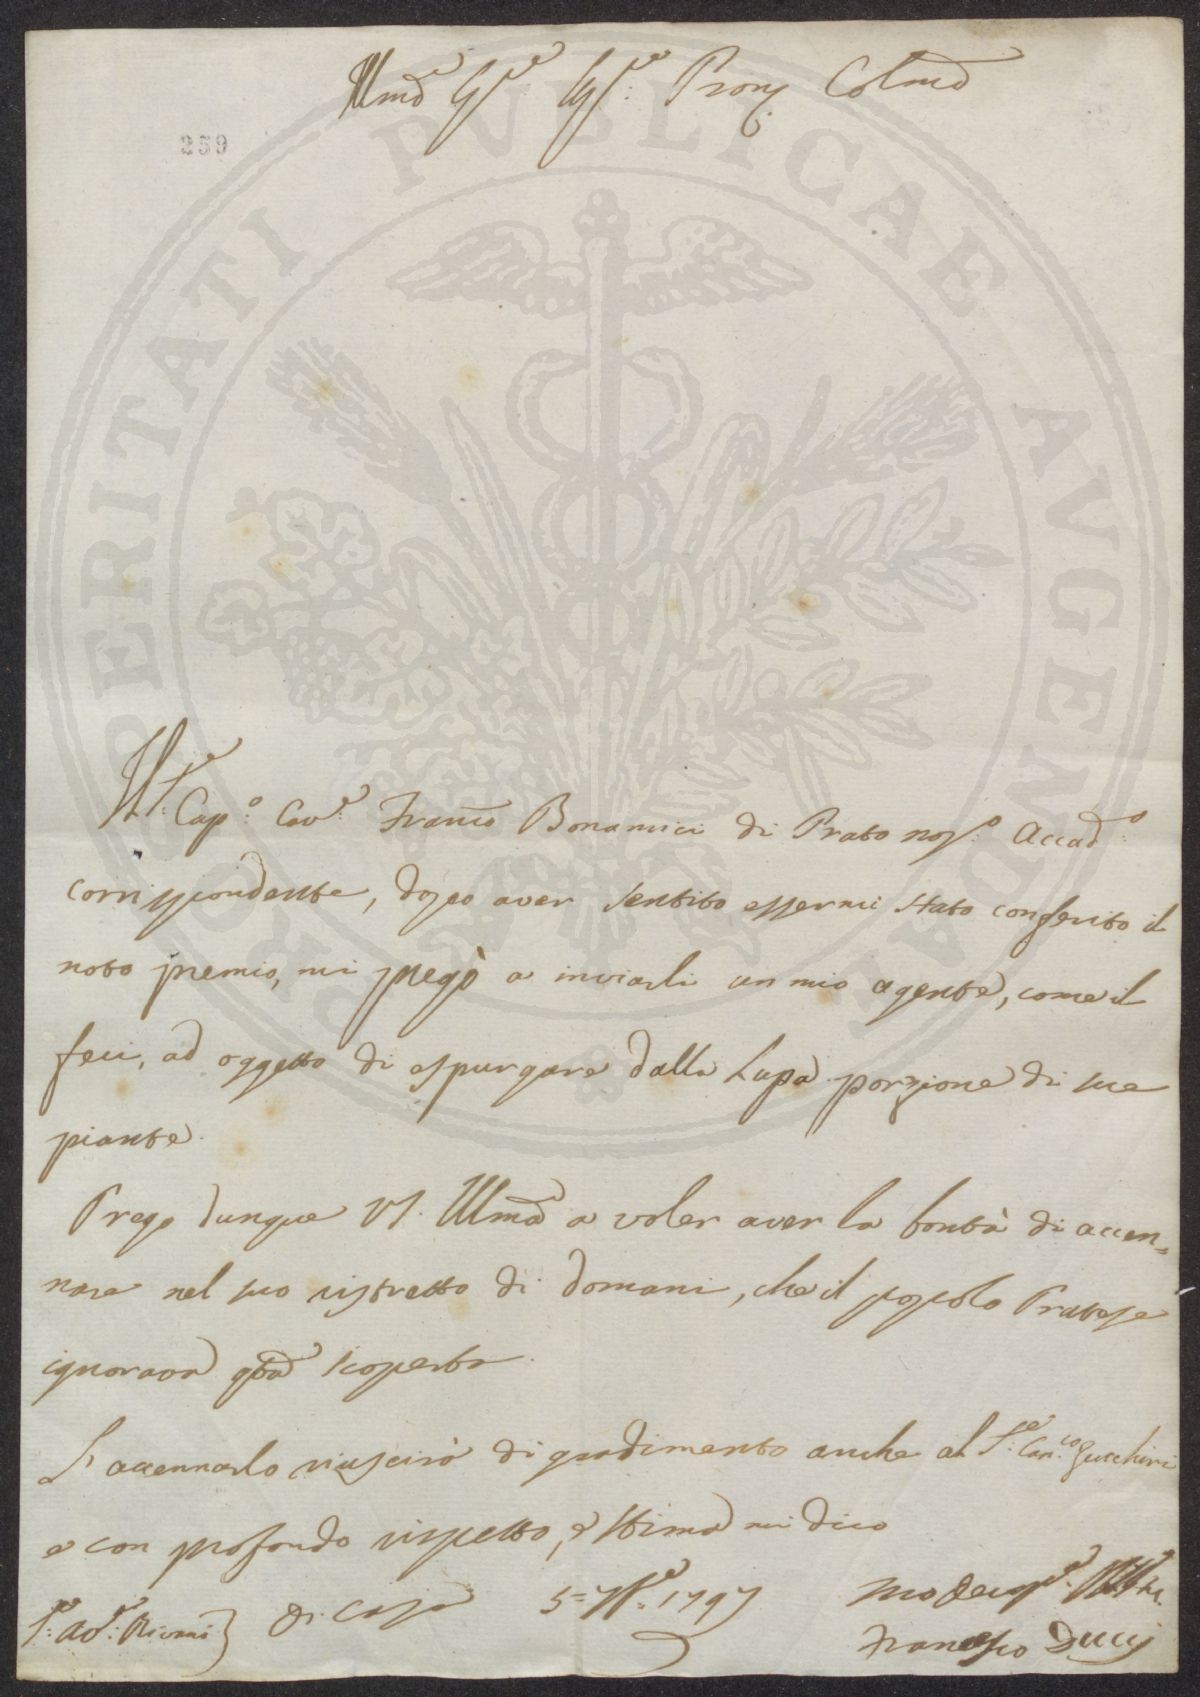 Illmo Sig.re Sig.re Pron Colmo
259
PROSPERITATI PVBLICAE AVGENDAE
Il S.re Cap.o Cav.e Franco Bonamici di Prato nos.o Accad.o
corrispondente, dopo aver sentito essermi stato conferito il
noto premio, mi pregò a inviarli un mio agente, come il
feci, ad oggetto di espurgare dalla Lupa porzione di sue
piante.
Prego dunque VS. Illma a voler aver la bontà di accen=
nare nel suo ristretto di domani, che il popolo Pratese
ignorava qta scoperta.
L'accennarlo riuscirà di gradimento anche al S.re Can.co Zucchini
e con profondo rispetto, e stima mi dico
S.re Av.e Rivani} di Casa 5= 7bre 1797
Francesco Ducci